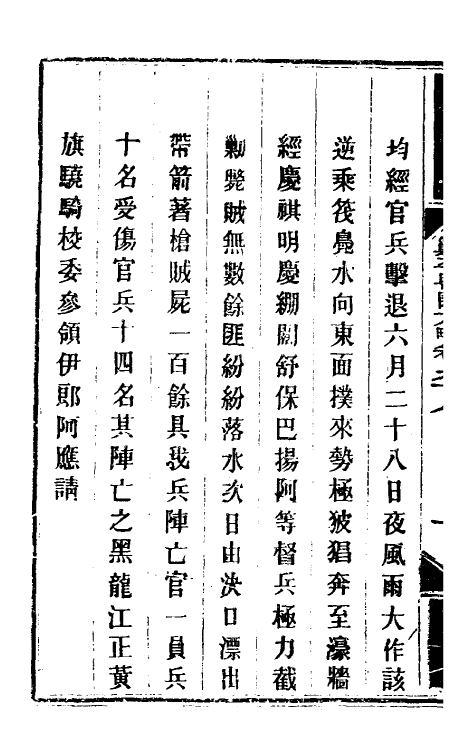 均經官兵擊退六月二十八日夜風雨大作該
逆乘筏鳧水向東面撲來勢極狓猖奔至濠牆
經慶祺明慶綳闊舒保巴揚阿等督兵極力截
勦斃賊無數餘匪紛紛落水次日由決口漂出
帶箭著槍賊屍一百餘具我兵陣亡官一員兵
十名受傷官兵十四名其陣亡之黑龍江正黃
旗驍騎校委參領伊郎阿應請